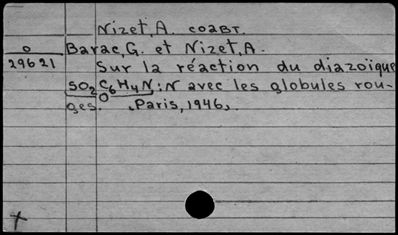 Nizet, A. соавт.
o
Barac, G. et Nizet, A.
29621
Sur la réaction du diazoïque
SO2 C6H4N:N avec les globules rou-
O
ges. Paris, 1946.